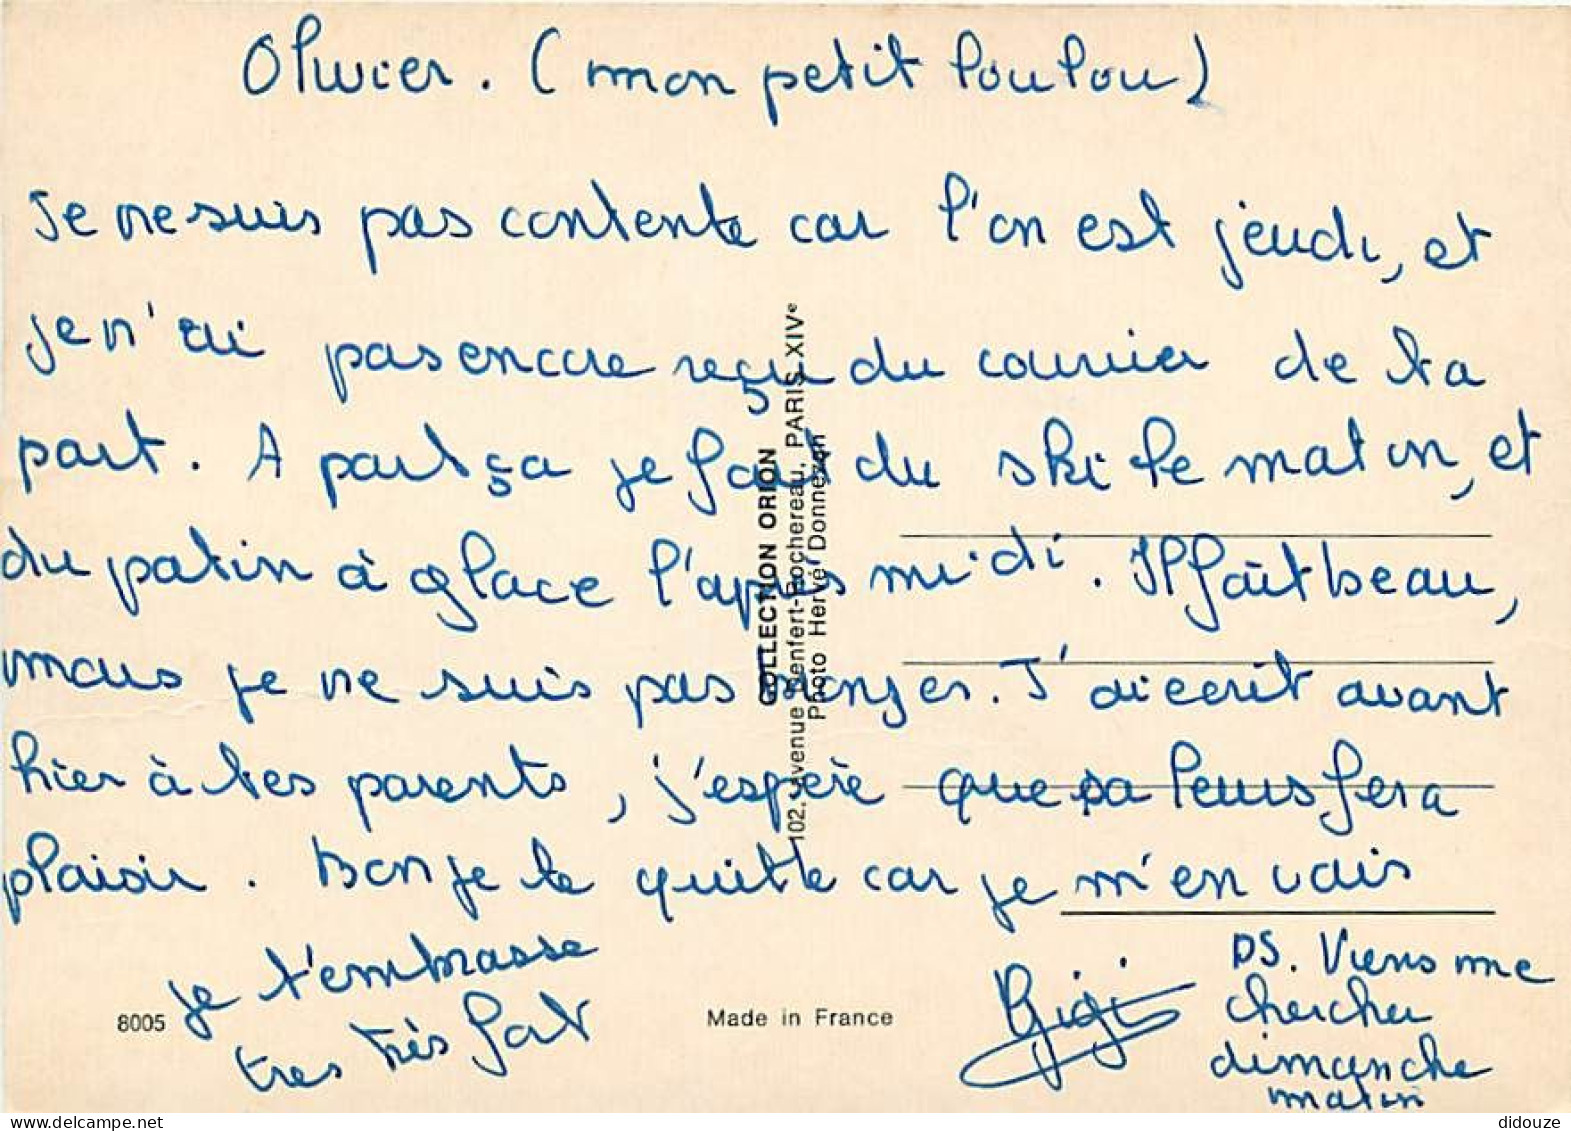 Olivier. (mon petit loulou)
Je ne suis pas contente car l'on est jeudi, et
je n'ai pas encore reçu du courrier de ta
part. A part ça je fait du ski le matin, et
du patin à glace l'après midi. Il fait beau,
mais je ne suis pas bronzer. J'ai ecrit avant
hier à tes parents, j'espère que sa leurs fera
plaisir. Bon je te quitte car je m'en vais
je t'embrasse
tres très fort
Gigi
PS. Viens me
chercher
dimanche
matin
COLLECTION ORION
102, avenue Denfert-Rochereau, PARIS XIVe
Photo Hervé Donnezan
8005
Made in France
didouze